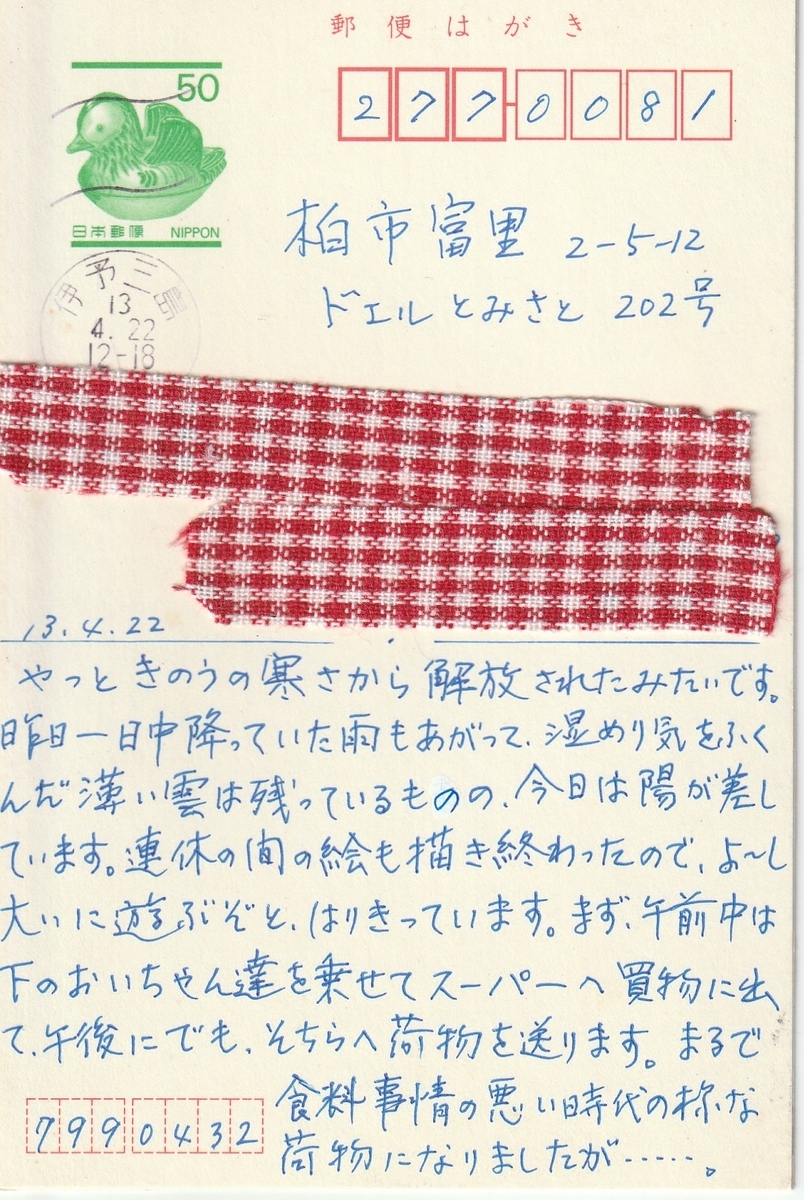 郵便はがき
50
日本郵便 NIPPON
277-0081
伊予三島
13
4.22
12-18
柏市富里 2-5-12
ドエルとみさと 202号
13.4.22
やっときのうの寒さから解放されたみたいです。
昨日一日中降っていた雨もあがって、湿めり気をふく
んだ薄い雲は残っているものの、今日は陽が差し
ています。連休の間の絵も描き終わったので、よ〜し
大いに遊ぶぞと、はりきっています。まず、午前中は
下のおいちゃん達を乗せてスーパーへ買物に出
て、午後にでも、そちらへ荷物を送ります。まるで
食料事情の悪い時代の様な
荷物になりましたが……。
7990432